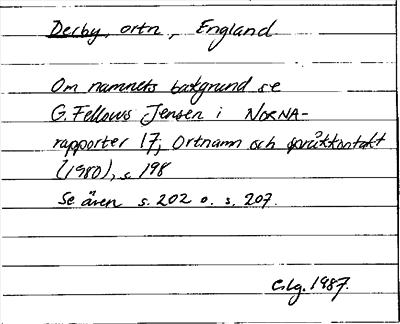 Derby, ortn, England
Om namnets bakgrund se
G. Fellows Jensen i NORNA-
rapporter 17, Ortnamn och språkkontakt
(1980), s 198
Se även s. 202 o. s. 207.
Clg. 1987.